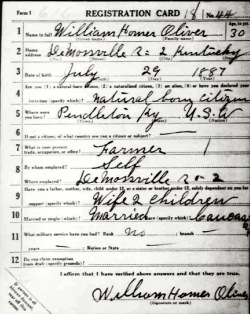 Form 1 REGISTRATION CARD No. 44
1 Name in full William Homer Oliver Age, in yrs. 30
(Given name) (Family name)
2 Home address DeMossville R-2 Kentucky
3 Date of birth July 29 1887
(Month) (Day) (Year)
4 Are you (1) a natural-born citizen, (2) a naturalized citizen, (3) an alien, (4) or have you declared your
intention (specify which)? natural born citizen
5 Where were you born? Pendleton Ky U.S.A
6 If not a citizen, of what country are you a citizen or subject?
7 What is your present trade, occupation, or office? Farmer 1
8 By whom employed? Self
Where employed? DeMossville R-2
9 Have you a father, mother, wife, child under 12, or a sister or brother under 12, solely dependent on you for
support (specify which)? Wife 2 Children
10 Married or single (which)? Married Race (specify which)? Caucas
11 What military service have you had? Rank no branch
years Nation or State
12 Do you claim exemption from draft (specify grounds)?
I affirm that I have verified above answers and that they are true.
William Homer Oliver
(Signature or mark)